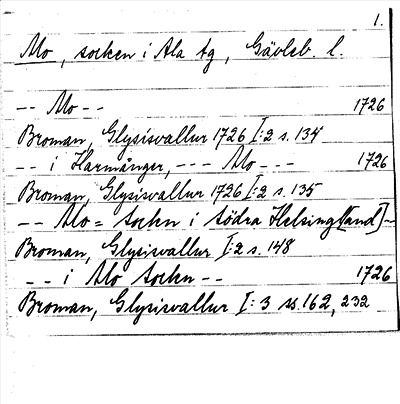 1.
Mo, socken i Ala tg, Gävleb. l.
-- Mo -- 1726
Broman, Glysisvallur 1726 I:2 s. 134
-- i Harmånger, --- Mo --- 1726
Broman, Glysisvallur 1726 I:2 s. 135
-- Mo = Sockn i Södra Helsing[land] -
Broman, Glysisvallur I:2 s. 148
-- i Mo Sockn -- 1726
Broman, Glysisvallur I:3 ss. 162, 232